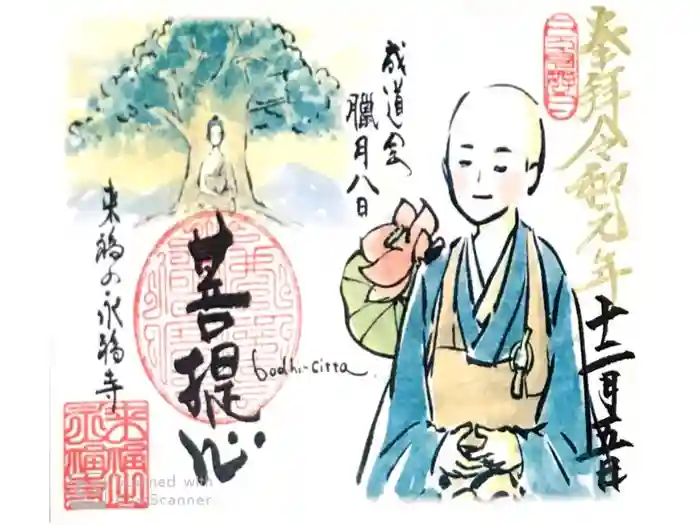 奉拝令和元年
十二月五日
成道会
臘月八日
菩提心
bodhi-citta
来福の永福寺
来福山
永福寺